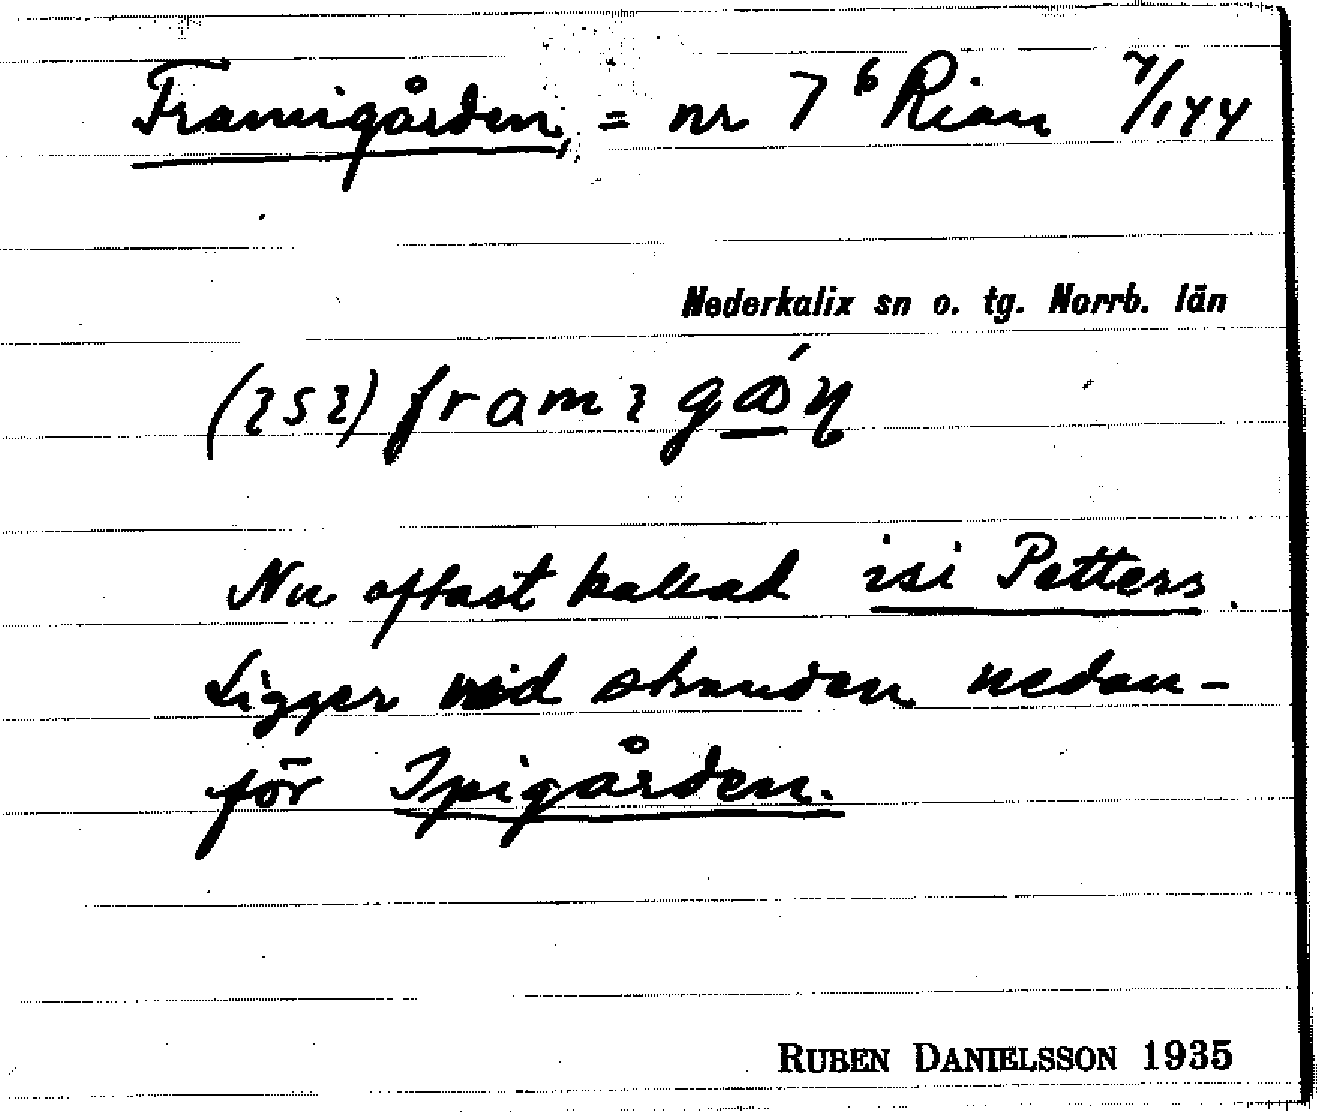 Framigården, = nr 7⁶ Rian 7/144
Nederkalix sn o. tg. Norrb. län
(ısı) framıgǻn
Nu oftast kallad isi Petters.
Ligger vid stranden nedan-
för Ipigården.
RUBEN DANIELSSON 1935